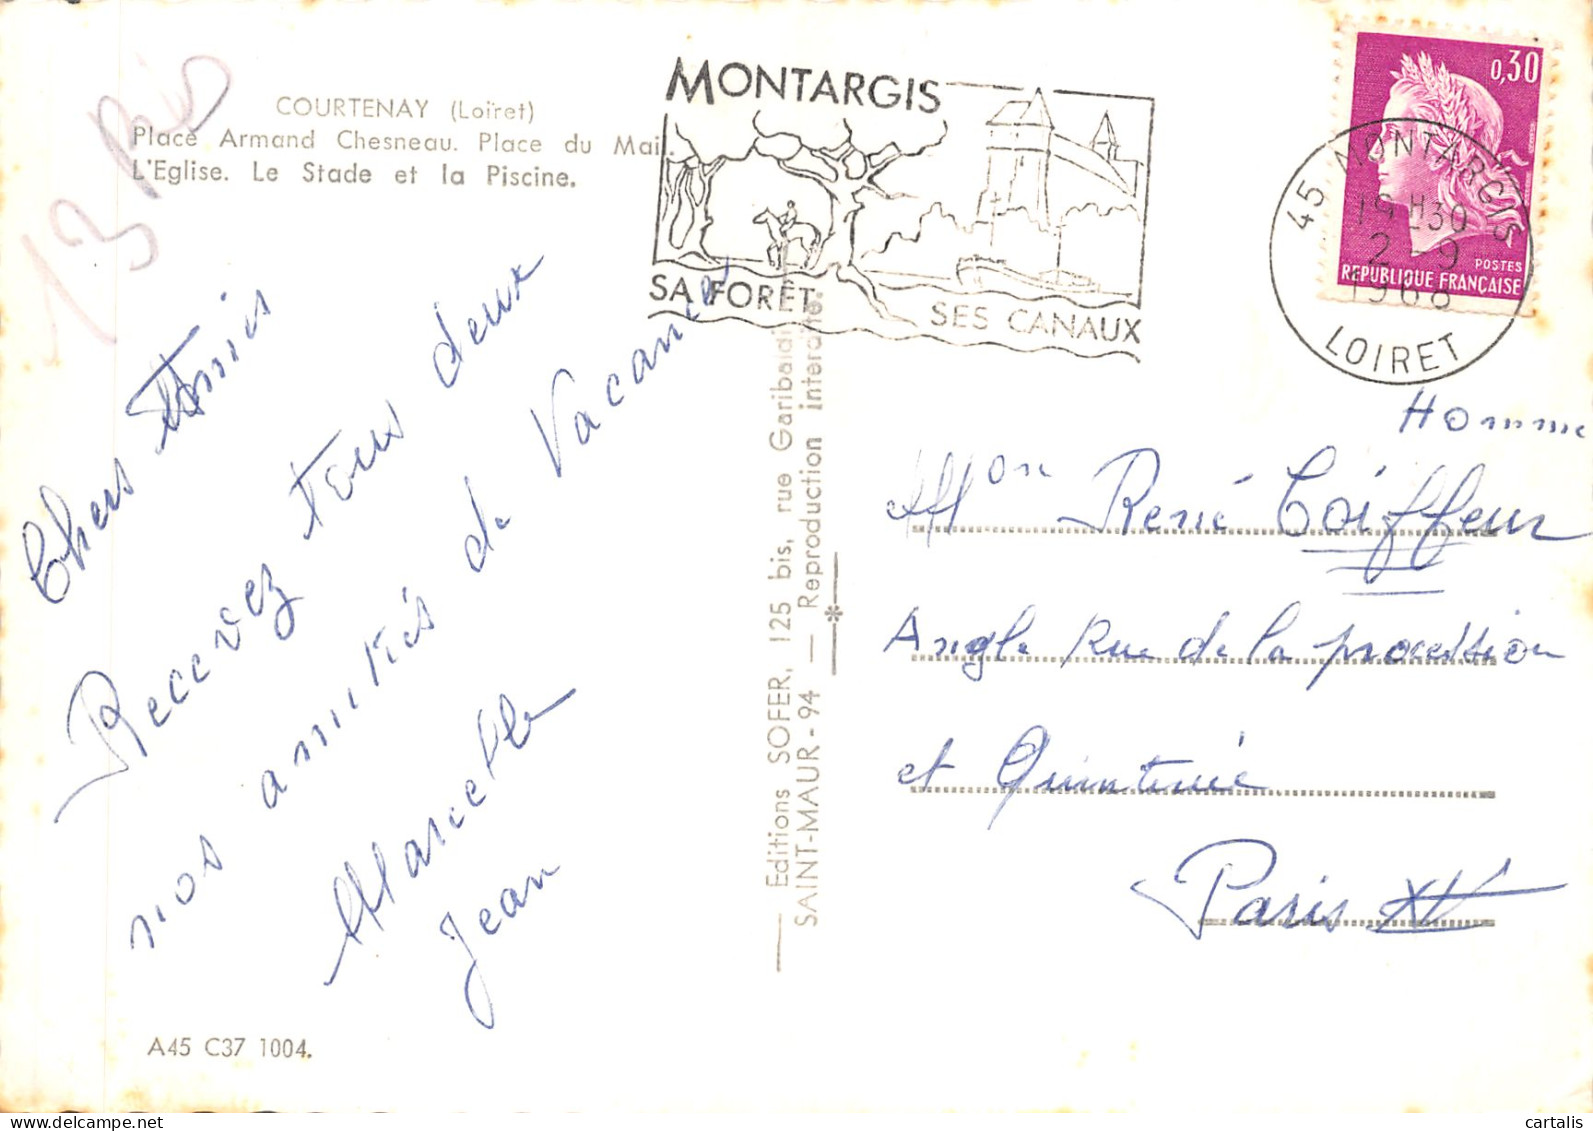 COURTENAY (Loiret)
Place Armand Chesneau. Place du Mail.
L'Eglise. Le Stade et la Piscine.
13 bis
Chers Amis
Recevez tous deux
nos amitiés de Vacances
Marcelle
Jean
A45 C37 1004.
MONTARGIS
SA FORÊT
SES CANAUX
0,30
POSTES
REPUBLIQUE FRANÇAISE
45 MONTARGIS
19 H30
2 - 9
1968
LOIRET
Editions SOFER, 125 bis, rue Garibaldi
SAINT-MAUR - 94 — Reproduction interdite.
Homme
Mon René Coiffeur
Angle Rue de la procession
et Quintinie
Paris XV
cartalis
www.delcampe.net